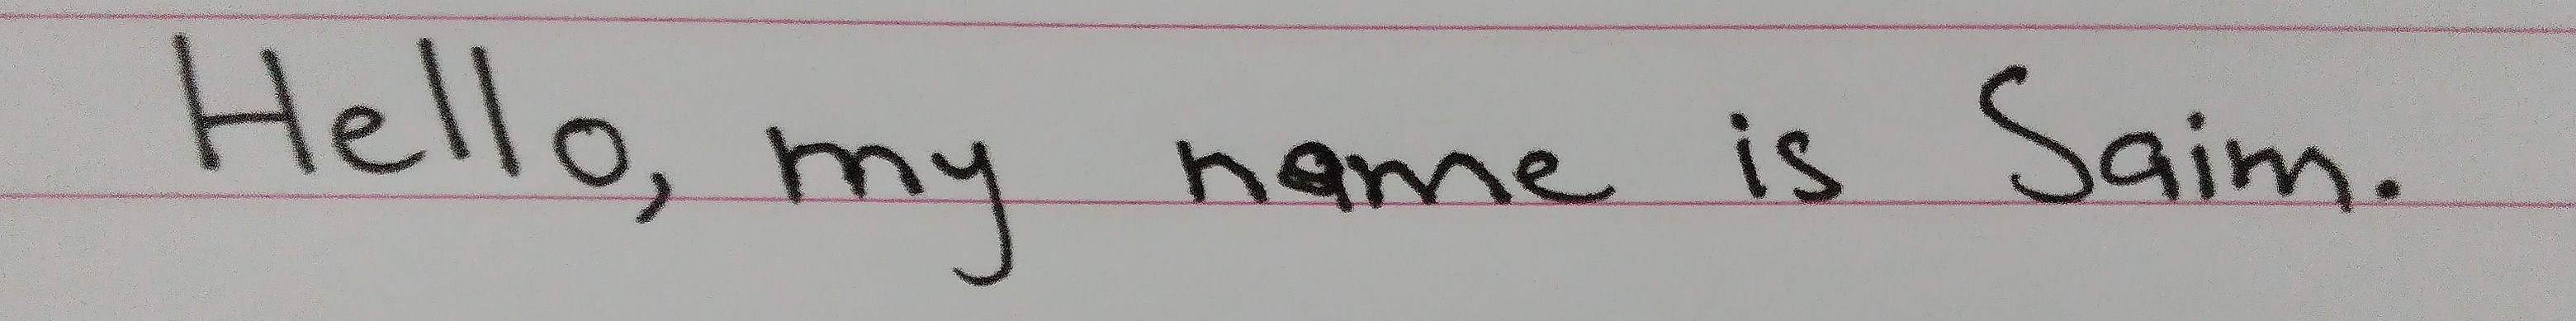 Hello, my name is Saim.